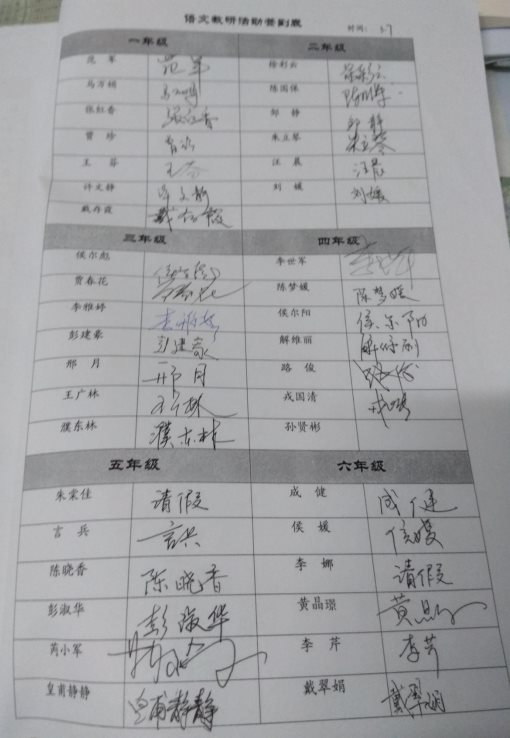 语文教研活动签到表
时间: 3.7
一年级 二年级
范军 范军 徐彩云 徐彩云
马万娟 陈国保 陈国保
张红香 张红香 邹静 邹静
曾珍 曾珍 朱立琴 朱立琴
王芬 王芬 汪晨 汪晨
许文静 许文静 刘媛 刘媛
戴存霞 戴存霞
三年级 四年级
侯尔彪 侯尔彪 李世军 李世军
贾春花 贾春花 陈梦媛 陈梦媛
李雅婷 李雅婷 侯尔阳 侯尔阳
彭建豪 彭建豪 解维丽 解维丽
邢月 邢月 路俊 路俊
王广林 王广林 戎国清
濮东林 濮东林 孙贤彬
五年级 六年级
朱荣佳 请假 成健 成健
言兵 言兵 侯媛 侯媛
陈晓香 陈晓香 李娜 请假
彭淑华 彭淑华 黄晶璟
芮小军 李芹 李芹
皇甫静静 皇甫静静 戴翠娟 戴翠娟